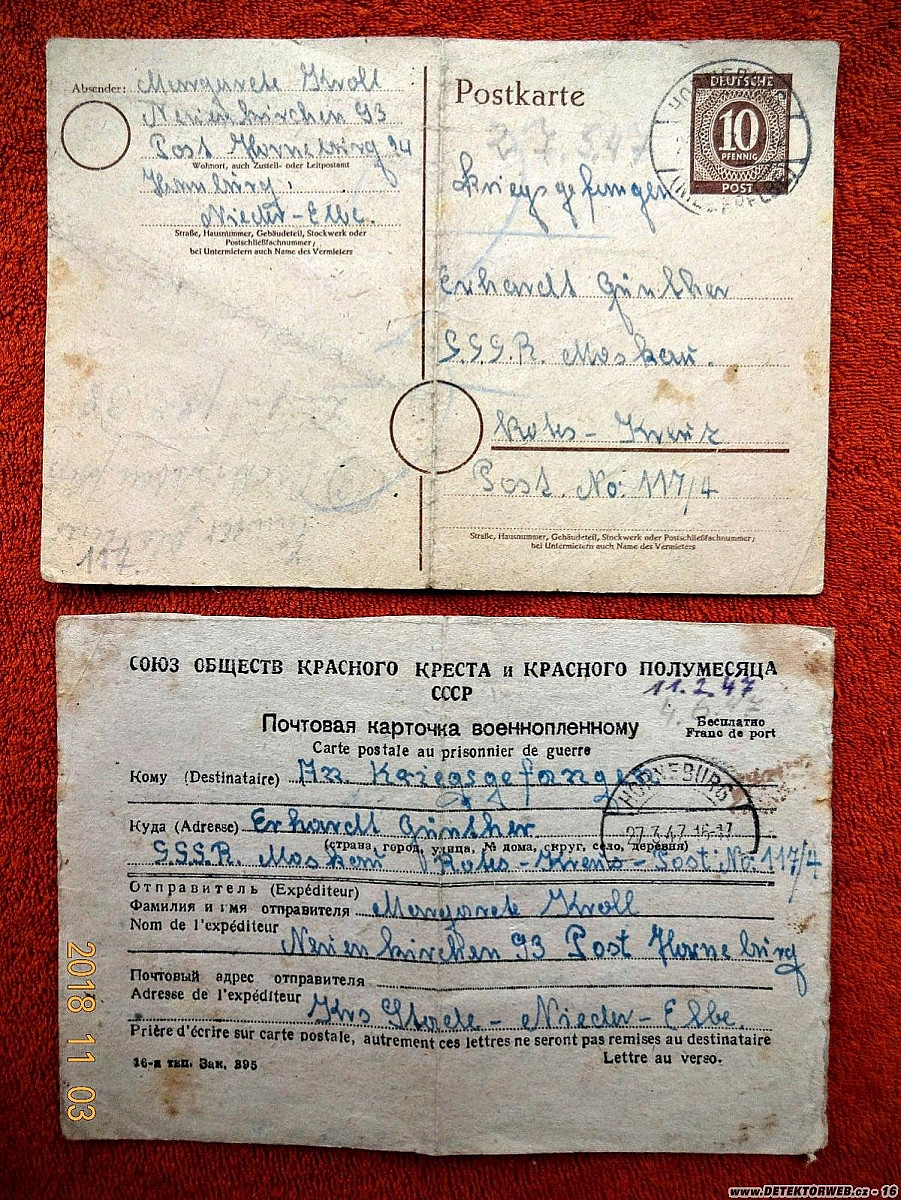 Absender: Margarete Kroll
Neuenkirchen 93
Post Horneburg 24
Wohnort, auch Zustell- oder Leitpostamt
Hamburg,
Nieder-Elbe.
Straße, Hausnummer, Gebäudeteil, Stockwerk oder
Postschließfachnummer;
bei Untermietern auch Name des Vermieters
117.
Postkarte
DEUTSCHE
10
PFENNIG
POST
Kriegsgefangen
Erhardt Günther
S.S.S.R. Moskau.
Rotes-Kreuz
Post. No: 117/4
Straße, Hausnummer, Gebäudeteil, Stockwerk oder Postschließfachnummer;
bei Untermietern auch Name des Vermieters
СОЮЗ ОБЩЕСТВ КРАСНОГО КРЕСТА и КРАСНОГО ПОЛУМЕСЯЦА
СССР
11.2.47
Почтовая карточка военнопленному
Бесплатно
Franc de port
Carte postale au prisonnier de guerre
Кому (Destinataire) An Kriegsgefangen
HORNEBURG
27.3.47.16-17
Куда (Adresse) Erhardt Günther
(страна, город, улица, № дома, округ, село, деревня)
S.S.S.R. Moskau Rotes-Kreuz-Post: No: 117/4
Отправитель (Expéditeur)
Фамилия и имя отправителя Margarete Kroll
Nom de l'expéditeur
Neuenkirchen 93 Post Horneburg
Почтовый адрес отправителя
Adresse de l'expéditeur Krs Stade - Nieder-Elbe.
Prière d'écrire sur carte postale, autrement ces lettres ne seront pas remises au destinataire
16-я тип. Зак. 895
Lettre au verso.
2018 11 03
www.DETEKTORWEB.cz - 16